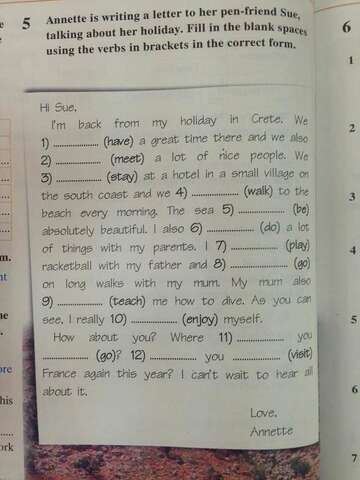 5 Annette is writing a letter to her pen-friend Sue,
talking about her holiday. Fill in the blank spaces
using the verbs in brackets in the correct form.
Hi Sue,
I'm back from my holiday in Crete. We
1) .................... (have) a great time there and we also
2) .................... (meet) a lot of nice people. We
3) .................... (stay) at a hotel in a small village on
the south coast and we 4) .................... (walk) to the
beach every morning. The sea 5) .................... (be)
absolutely beautiful. I also 6) .................... (do) a lot
of things with my parents. I 7) .................... (play)
racketball with my father and 8) .................... (go)
on long walks with my mum. My mum also
9) .................... (teach) me how to dive. As you can
see, I really 10) .................... (enjoy) myself.
How about you? Where 11) .................... you
.................... (go)? 12) .................... you .................... (visit)
France again this year? I can't wait to hear all
about it.
Love,
Annette
6
1
2
3
4
5
6
7